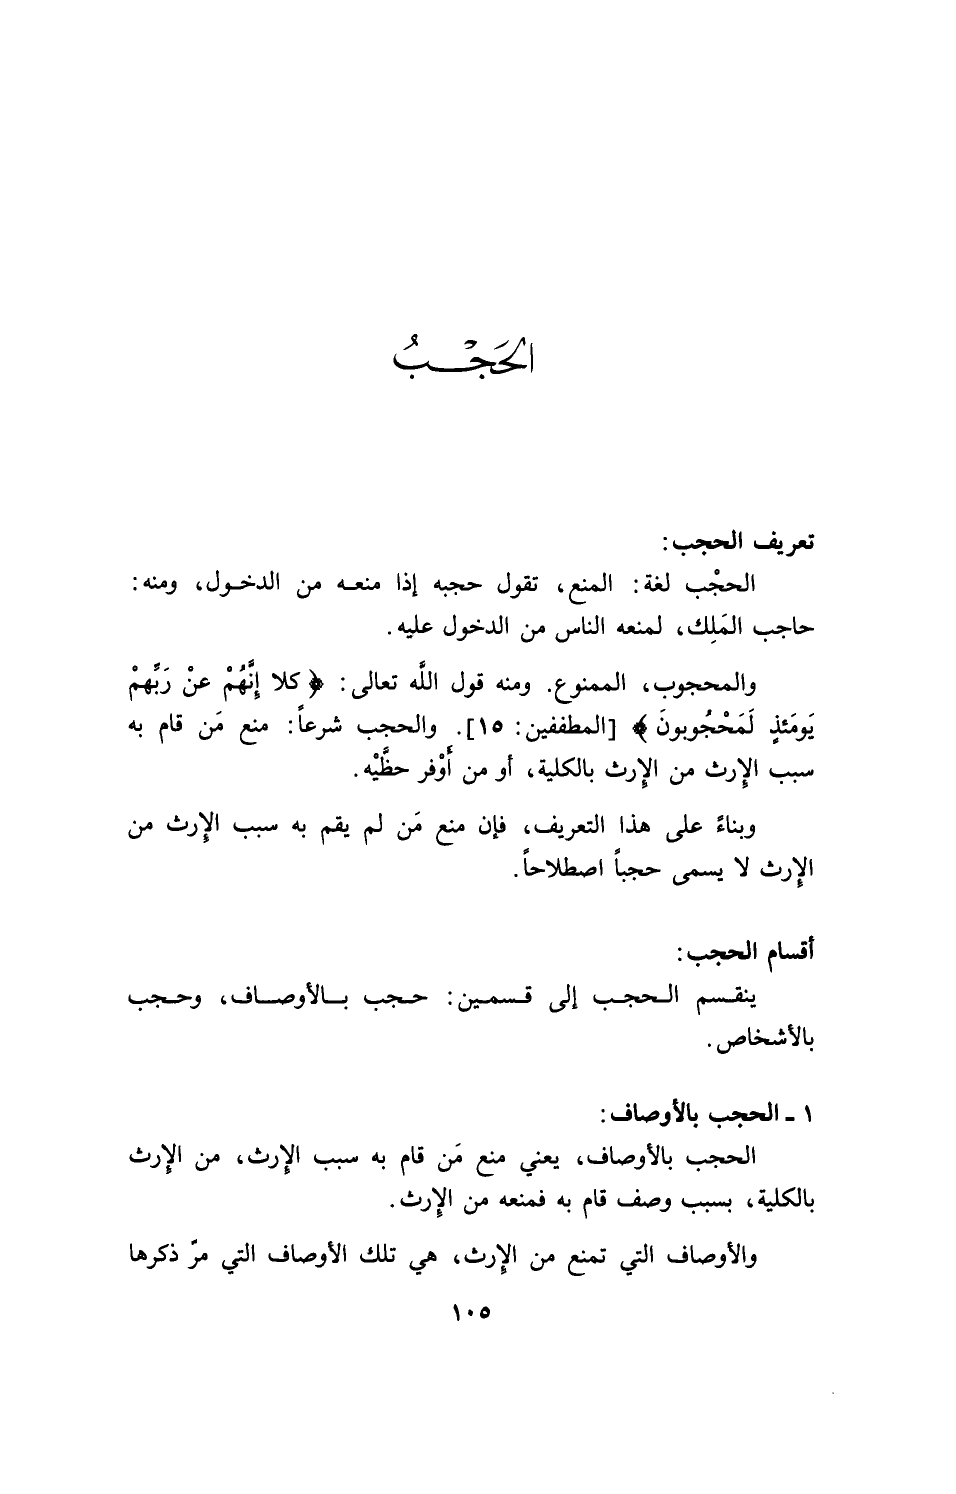 الحَجْبُ
تعريف الحجب:
الحجْب لغة: المنع، تقول حجبه إذا منعه من الدخول، ومنه:
حاجب المَلِك، لمنعه الناس من الدخول عليه.
والمحجوب، الممنوع. ومنه قول اللَّه تعالى: ﴿كلا إنَّهُمْ عنْ رَبِّهمْ
يَومَئذٍ لَمَحْجُوبونَ﴾ [المطففين: ١٥]. والحجب شرعاً: منع مَن قام به
سبب الإرث من الإرث بالكلية، أو من أَوْفر حظَّيْه.
وبناءً على هذا التعريف، فإن منع مَن لم يقم به سبب الإرث من
الإرث لا يسمى حجباً اصطلاحاً.
أقسام الحجب:
ينقسم الحجب إلى قسمين: حجب بالأوصاف، وحجب
بالأشخاص.
١ - الحجب بالأوصاف:
الحجب بالأوصاف، يعني منع مَن قام به سبب الإرث، من الإرث
بالكلية، بسبب وصف قام به فمنعه من الإرث.
والأوصاف التي تمنع من الإرث، هي تلك الأوصاف التي مرّ ذكرها
١٠٥